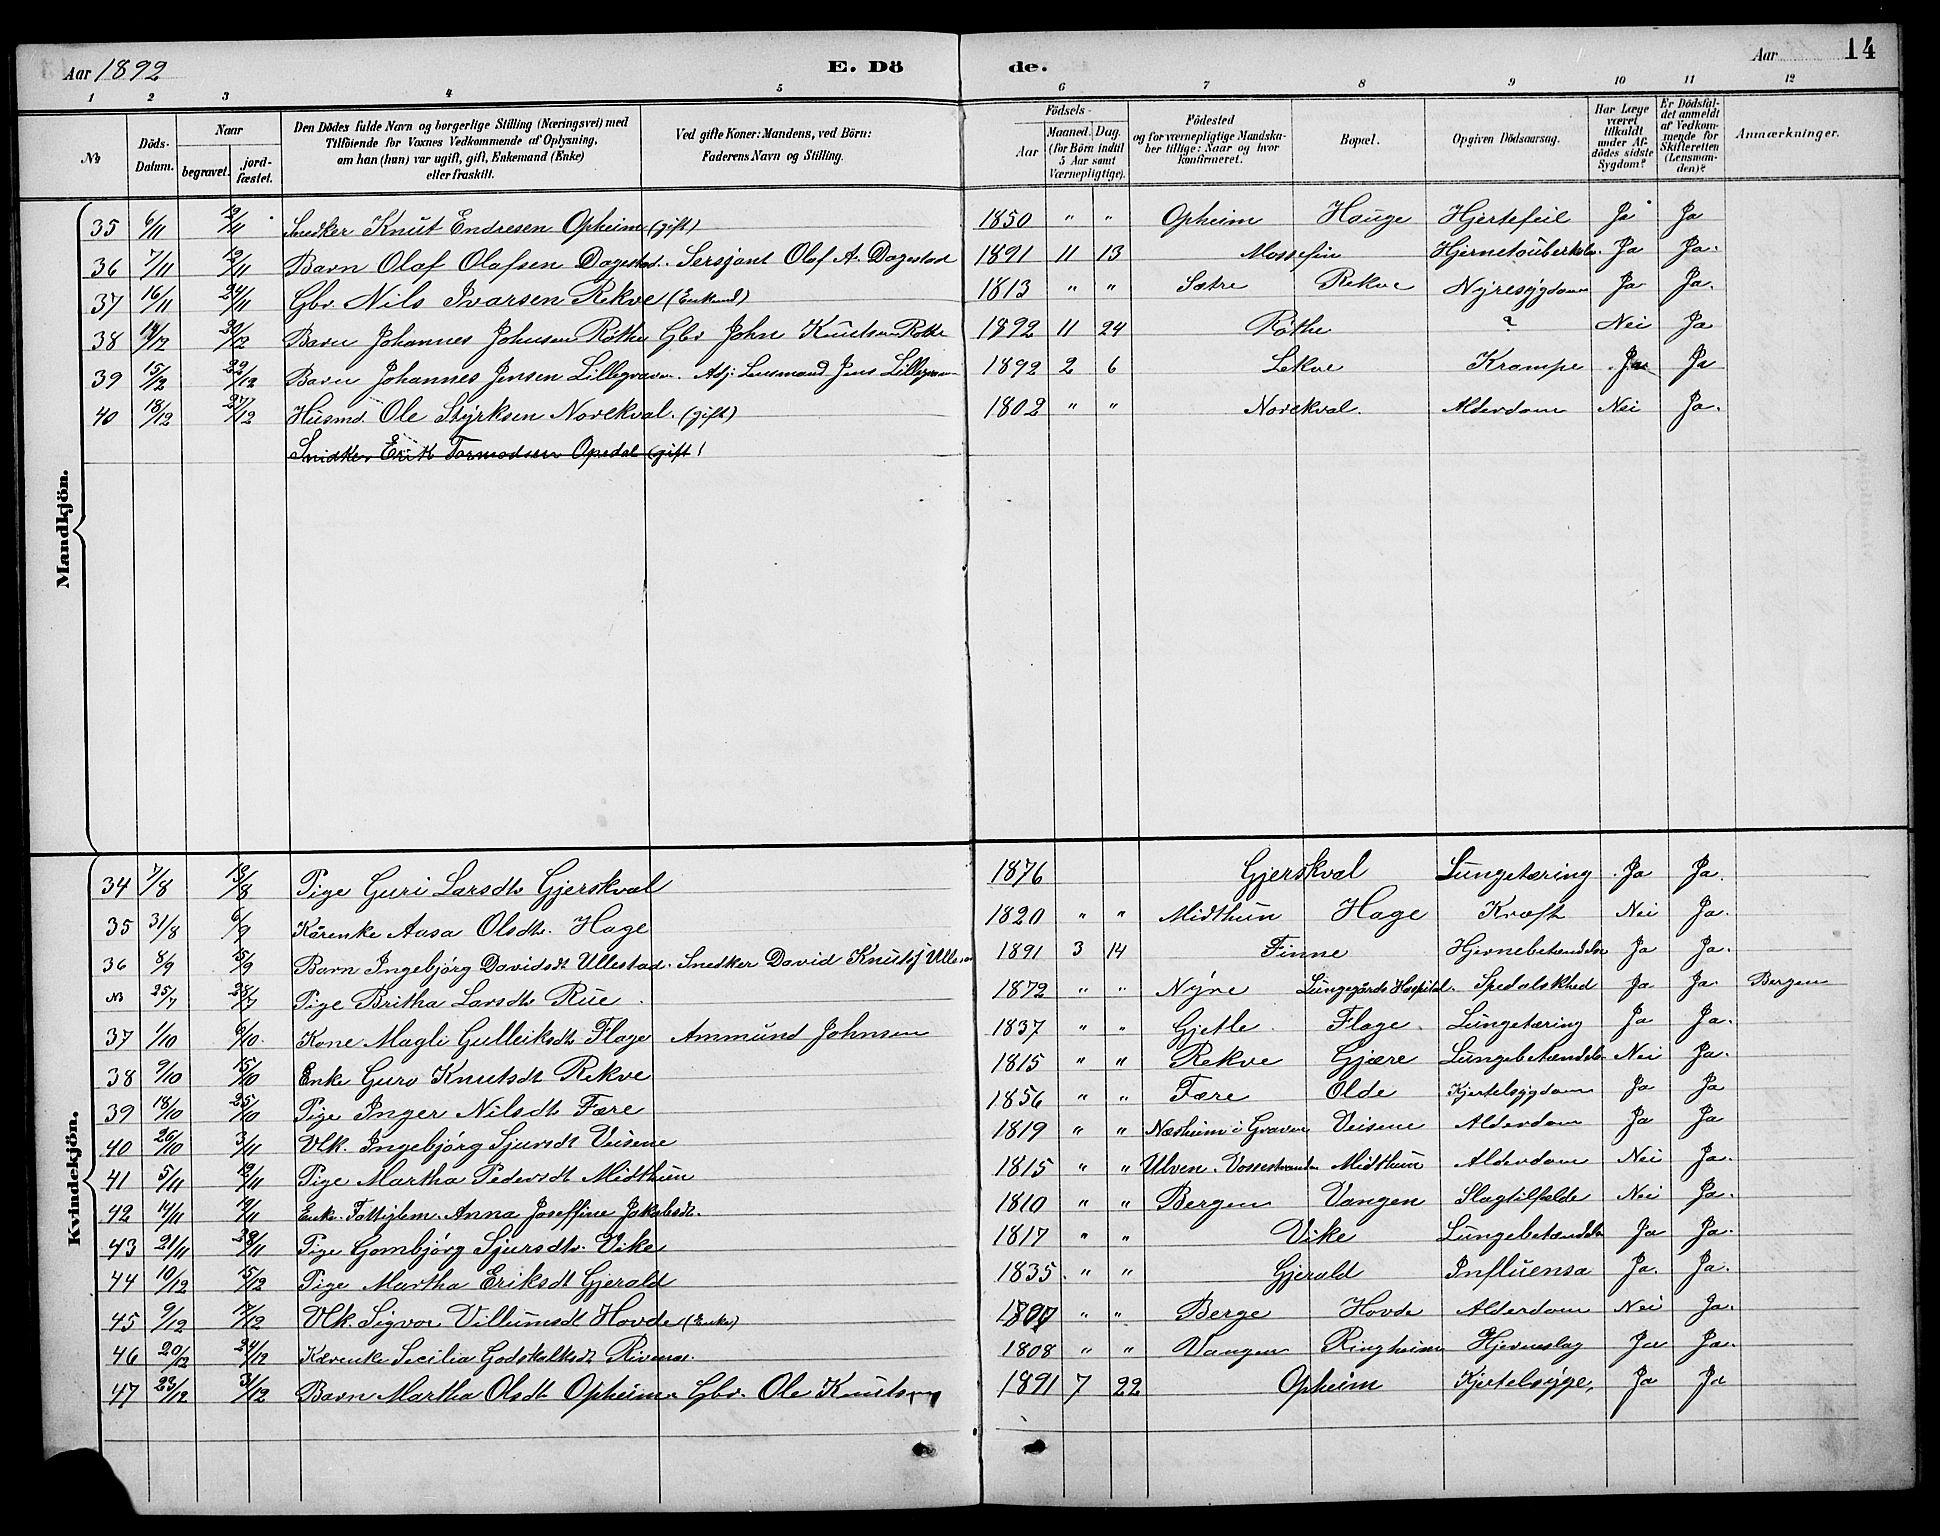 Aar 1892 E. Dö de. Aar 14
1 2 3 4 5 6 7 8 9 10 11 12
№ Döds-Datum. Naar begravet. jord-fæstet. Den Dödes fulde Navn og borgerlige Stilling (Næringsvei) med Tilföiende for Voxnes Vedkommende af Oplysning, om han (hun) var ugift, gift, Enkemand (Enke) eller fraskilt. Ved gifte Koner: Mandens, ved Börn: Faderens Navn og Stilling. Födsels- Aar Maaned. Dag. (for Börn indtil 5 Aar samt Værnepligtige). Födested og for værnepligtige Mandskaber tillige: Naar og hvor konfirmeret. Bopæl. Opgiven Dödsaarsag. Har Læge været tilkaldt under Afdödes sidste Sygdom? Er Dödsfaldet anmeldt af Vedkommende for Skifteretten (Lensmanden)? Anmærkninger.
Mandkjön.
35 6/11 12/11 Snedker Knut Endresen Opheim (gift) 1850 " " Opheim Hauge Hjertefeil Ja Ja
36 7/11 12/11 Barn Olaf Olafsen Dagestad. Sersjant Olaf A. Dagestad 1891 11 13 Mossefin Ja Ja.
37 16/11 24/11 Gbr. Nils Ivarsen Rekve (Enkemd) 1813 " " Sætre Rekve Nyresygdom Ja Ja.
38 14/12 20/12 Barn Johannes Johnsen Røthe Gbr John Knutsen Røthe 1892 11 24 Røthe ? Nei Ja
39 15/12 22/12 Barn Johannes Jensen Lillegraven. Adj: Lensmand Jens Lillegraven 1892 2 6 Lekve Krampe Ja Ja
40 18/12 27/12 Husmd. Ole Styrksen Norekval. (gift) 1802 " " Norekval. Alderdom Nei Ja.
Snidker Erik Tormodsen Opedal (gift)
Kvindekjön.
34 7/8 13/8 Pige Guri Larsdtr Gjerskval 1876 Gjerskval Lungetæring Ja Ja.
35 31/8 6/9 Kårenke Aasa Olsdtr. Hage 1820 " " Midthun Hage Kræft Nei Ja.
36 8/9 15/9 Barn Ingebjörg Davidsdt Ullestad. Snedker David 1891 3 14 Finne Hjernebetændelse Ja Ja.
NB 25/7 28/7 Pige Britha Larsdtr Rue. 1872 " " Nyre Lungegårds Hospital. Spedalskhed Ja Ja. Bergen
37 1/10 6/10. Kone Magli Gulleiksdt Flage Ammund Johnsen 1837 " " Gjetle Flage. Lungetæring Ja Ja.
38 9/10 15/10 Enke Guro Knutsdt Rekve 1815 " " Rekve Gjære Lungebetændelse Nei Ja.
39 18/10 25/10 Pige Inger Nilsdt Fære 1856 " " Fære Olde Kjertelsygdom Ja Ja
40 26/10 3/11 Vlk. Ingebjörg Sjursdt Veisene 1819 " " Næsheim i Graven Veisene Alderdom Ja Ja
41 5/11 12/11 Pige Martha Pedersdt Midthun 1815 " " Ulven. Vossestranden Midthun Alderdom Nei Ja.
42 14/11 Enke. Fattiglem. Anna Joseffine Jakobsdt. 1810 " " Bergen Vangen Slagtilfælde Nei Ja.
43 21/11 28/11 Pige Gombjörg Sjursdtr. Vike 1817 " " Vike Lungebetændelse Ja Ja.
44 10/12 15/12 Pige Martha Eriksdt Gjerald 1835. " " Gjerald Influensa Ja. Ja.
45 9/12 17/12 Vlk. Sigvor Villumsdt Hovde (Enke) " " Berge Hovde Alderdom Nei Ja.
46 20/12 24/12 Kårenke Secilia Godskalksdt 1808 " " Vangen Ringheim Hjerneslag Ja Ja.
47 23/12 31/12 Barn Martha Olsdt Opheim. Gbr. Ole Knutsen 1891 7 22 Opheim Kjertelsyge, Ja Ja